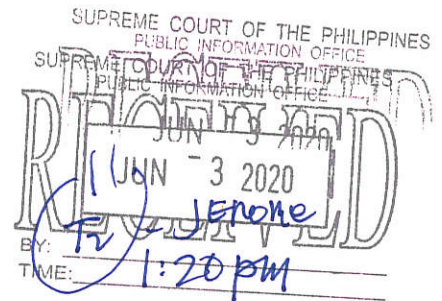 SUPREME COURT OF THE PHILIPPINES
PUBLIC INFORMATION OFFICE
SUPREME COURT OF THE PHILIPPINES
PUBLIC INFORMATION OFFICE
RECEIVED
JUN 3 2020
JUN - 3 2020
BY: Jerome
TIME: 1:20 pm